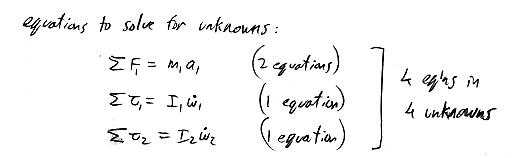 equations to solve for unknowns:
Σ F₁ = m₁ a₁ (2 equations)
Σ τ₁ = I₁ ω̇₁ (1 equation)
Σ τ₂ = I₂ ω̇₂ (1 equation)
4 eq'ns in
4 unknowns